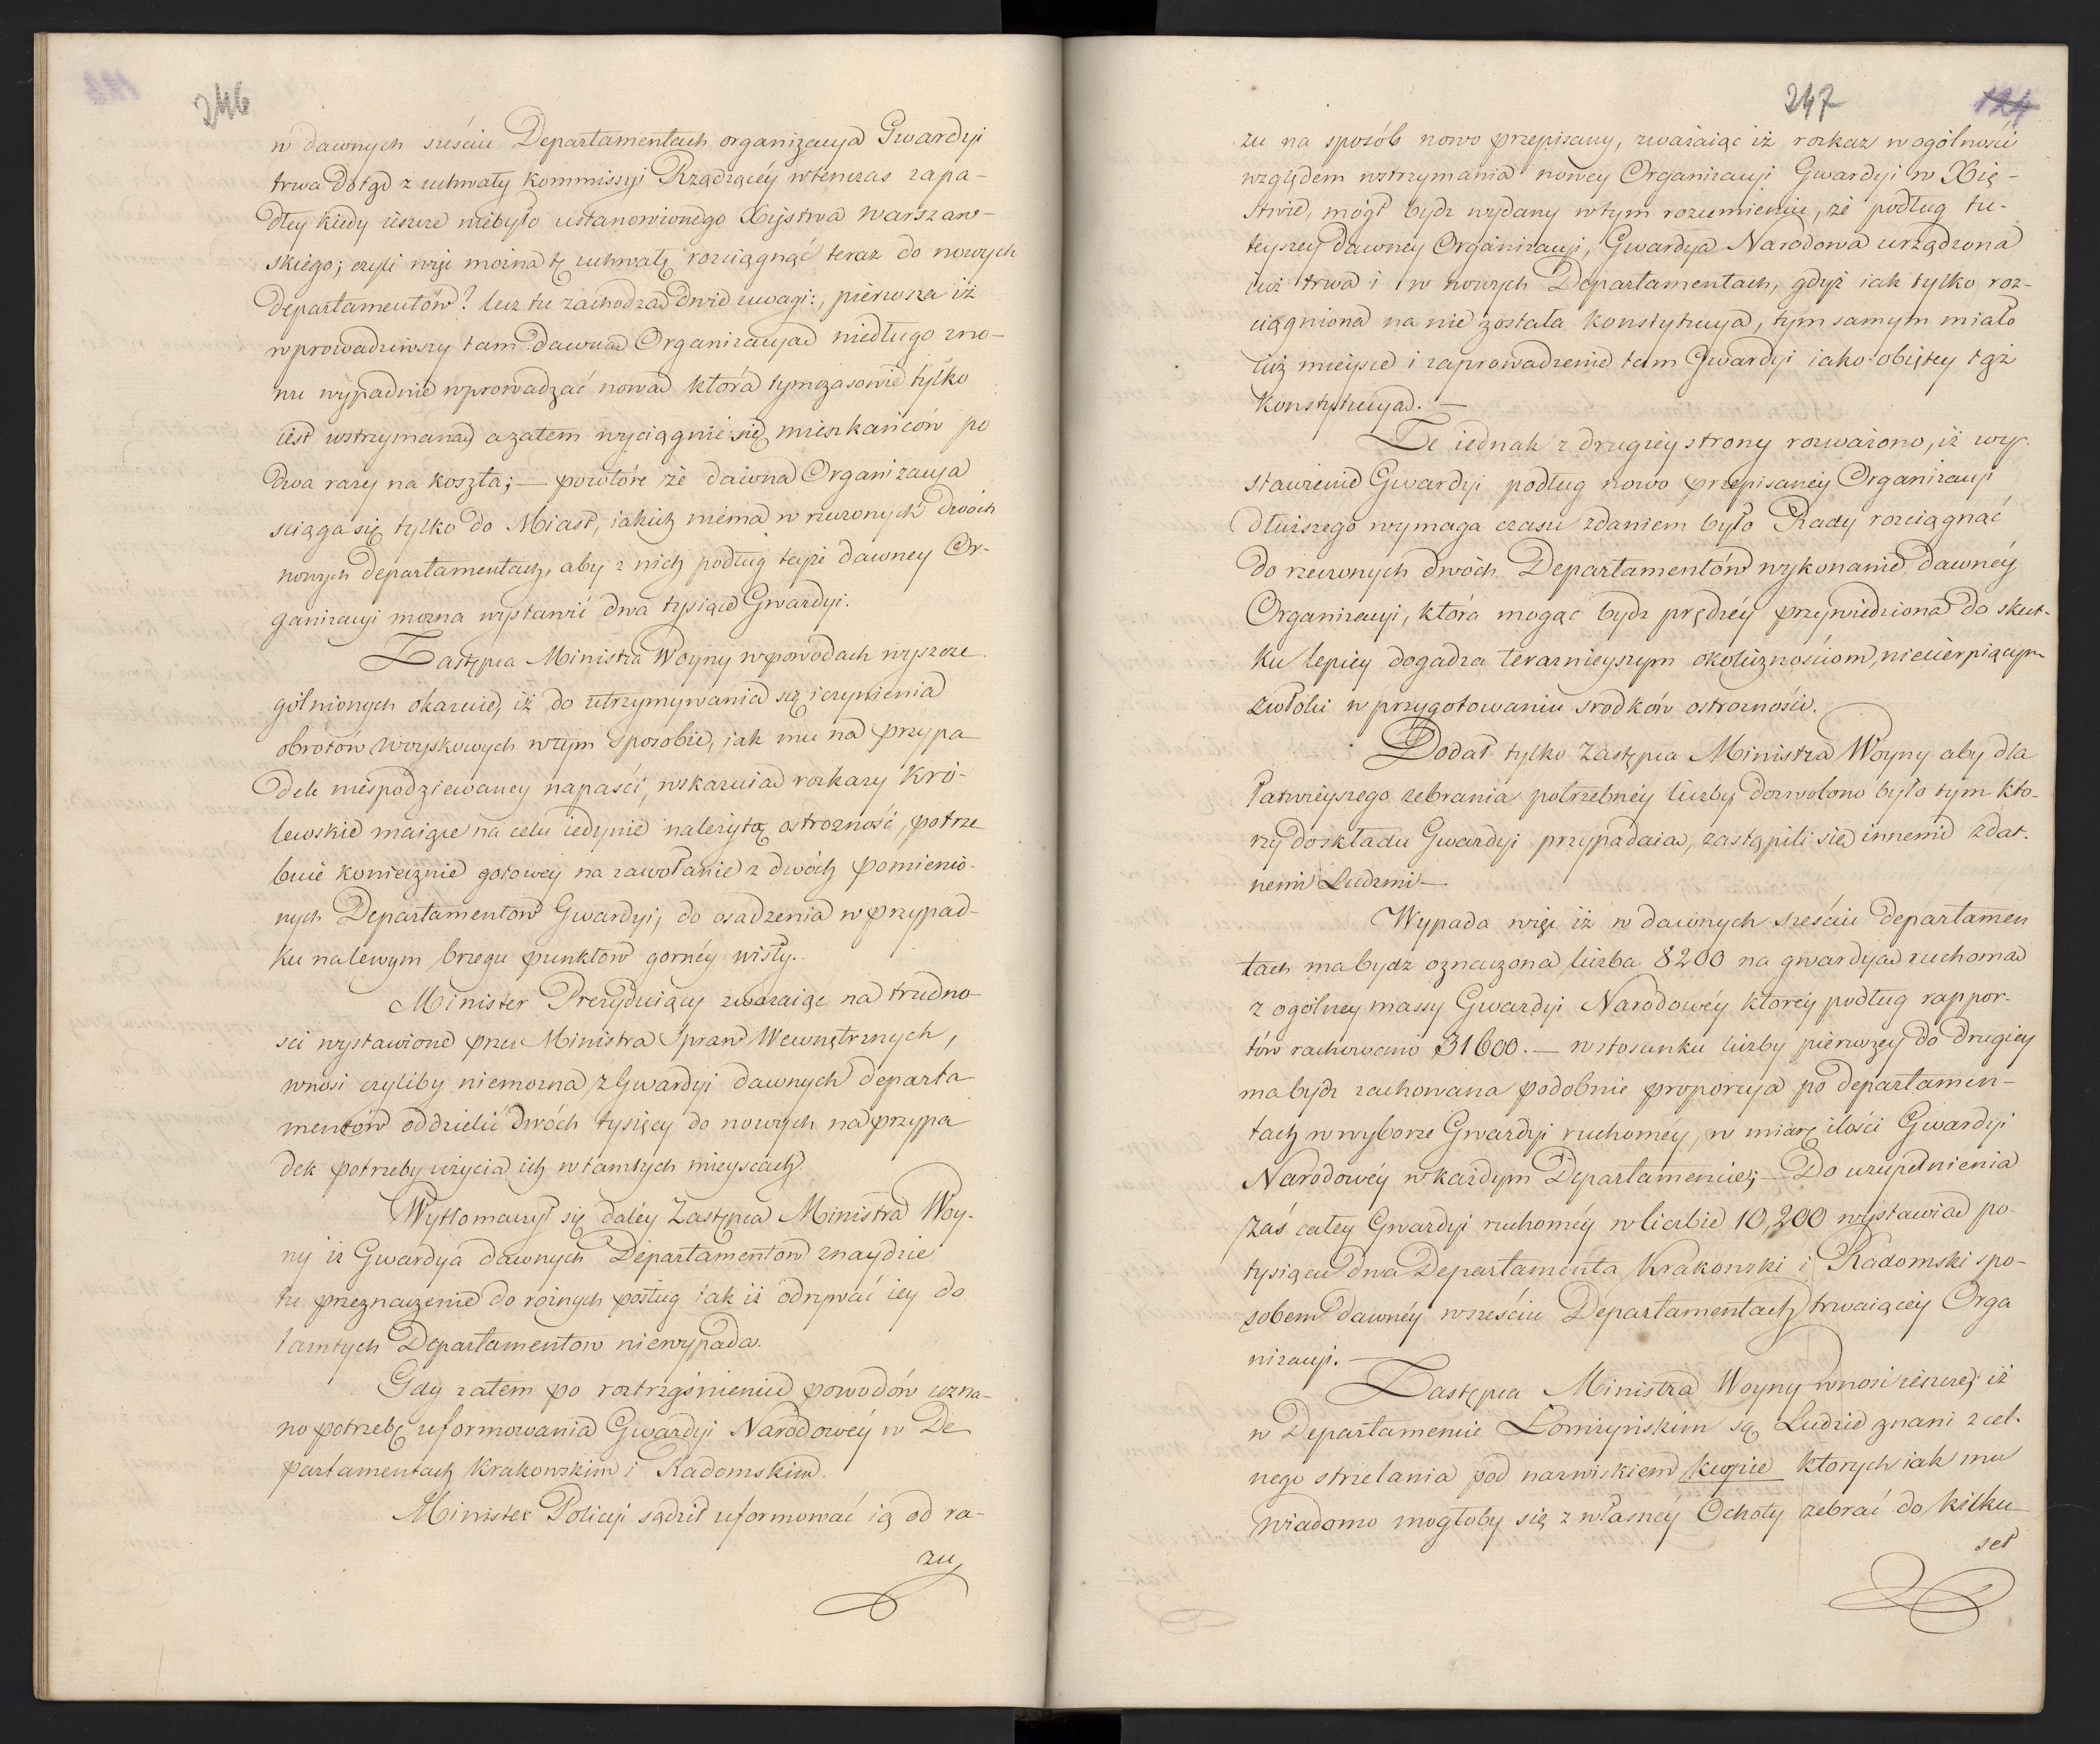 246
w dawnych sześciu Departamentach organizacya Gwardyi
trwa dotąd z uchwały Kommissyi Rządzącéy wtenczas zapa-
dłey kiedy ieszcze niebyło ustanowionego Xięstwa Warszaw-
skiego; czyli więc można tę uchwałę rozciągnąć teraz do nowych
Departamentów? lecz tu zachodzą dwie uwagi:, pierwsza iż
wprowadziwszy tam dawną Organizacyą niedługo zno-
wu wypadnie wprowadzać nową która tymczasowie tylko
iest wstrzymaną, azatem wyciągnie się mieszkańców po
dwa razy na koszta; — powtóre że dawna Organizacya
sciąga się tylko do Miast, iakich niéma w rzeczonych dwóch
nowych Departamentach, aby z nich podług teyże dawney Or-
ganizacyi można wystawić dwa tysiące Gwardyi.
Zastępca Ministra Woyny wpowodach wyszcze
gólnionych okazuie, iż do utrzymywania się i czynienia
obrotów woyskowych wtym sposobie, iak mu na przypa
dek niespodziewaney napaści, wskazuią rozkazy Kró-
lewskie maiące na celu iedynie należytą ostrożność, potrze
buie koniecznie gotowey na zawołanie z dwóch pomienio-
nych Departamentów Gwardyi, do osadzenia w przypad-
ku nalewym brzegu punktów gornéy wisły.
Minister Prezyduiący zważaiąc na trudno-
sci wystawione przez Ministra Spraw Wewnętrznych,
wnosi czyliby niemożna z Gwardyi dawnych departa
mentów oddzielić dwóch tysięcy do nowych na przypa
dek potrzeby użycia ich w tamtych mieyscach.
Wytłomaczył się daléy Zastępca Ministra Woy-
ny iż Gwardya dawnych Departamentów znaydzie
tu przeznaczenie do różnych posług iak iż odrywać iéy do
tamtych Departamentów niewypada.
Gdy zatem po roztrząśnieniu powodów uzna-
no potrzebę uformowania Gwardyi Narodowéy w De
partamentach Krakowskim i Radomskim.
Minister Policyi sądził uformować ią od ra-
zu
247
124
zu na sposób nowo przepisany, zważaiąc iż rozkaz wogólności
względem wstrzymania nowey Organizacyi Gwardyi w Xię-
stwie, mógł bydz wydany wtym rozumieniu, że podług tu-
teyszey dawney Organizacyi, Gwardya Narodowa urządzona
iuż trwa i w nowych Departamentach, gdyż iak tylko roz-
ciągniona na nie została Konstytucya, tym samym miało
iuż mieysce i zaprowadzenie tam Gwardyi iako obiętey tąż
Konstytucyą. —
Ze iednak z drugiéy strony rozważono, iż wy-
stawienie Gwardyi podług nowo przepisanéy Organizacyi
dłuższego wymaga czasu zdaniem było Rady rozciągnąć
do rzeczonych dwóch Departamentów wykonanie dawnéy
Organizacyi, która mogąc bydz prędzéy przywiedziona do skut-
ku lepiéy dogadza terazniéyszym okolicznościom, niecierpiącym
zwłoki w przygotowaniu srodków ostrożności.
Dodał tylko Zastępca Ministra Woyny aby dla
łatwiéyszego zebrania potrzebnéy liczby, dozwolono było tym któ-
rzy doskładu Gwardyi przypadaią, zastąpili się innemi zdat-
nemi Ludzmi —
Wypada więc iż w dawnych sześciu departamen
tach ma bydz oznaczona liczba 8200 na gwardyą ruchomą
z ogólney massy Gwardyi Narodowéy któréy podług rappor-
tów rachowano 31600. — w stosunku liczby pierwszey do drugiey
ma bydz zachowana podobnie proporcya po departamen-
tach w wyborze Gwardyi ruchoméy, w miarę ilości Gwardyi
Narodowéy w każdym Departamencie; — Do uzupełnienia
zaś całey Gwardyi ruchoméy w liczbie 10,200 wystawią po
tysiącu dwa Departamenta Krakowski i Radomski spo-
sobem dawnéy wsześciu Departamentach trwaiącéy Orga
nizacyi. —
Zastępca Ministra Woyny wnosi ieszcze, iż
w Departamencie Łomżyńskim są Ludzie znani z cel-
nego strzelania pod nazwiskiem Kurpie których iak mu
wiadomo mogłoby się z własnéy Ochoty zebrać do kilku-
set